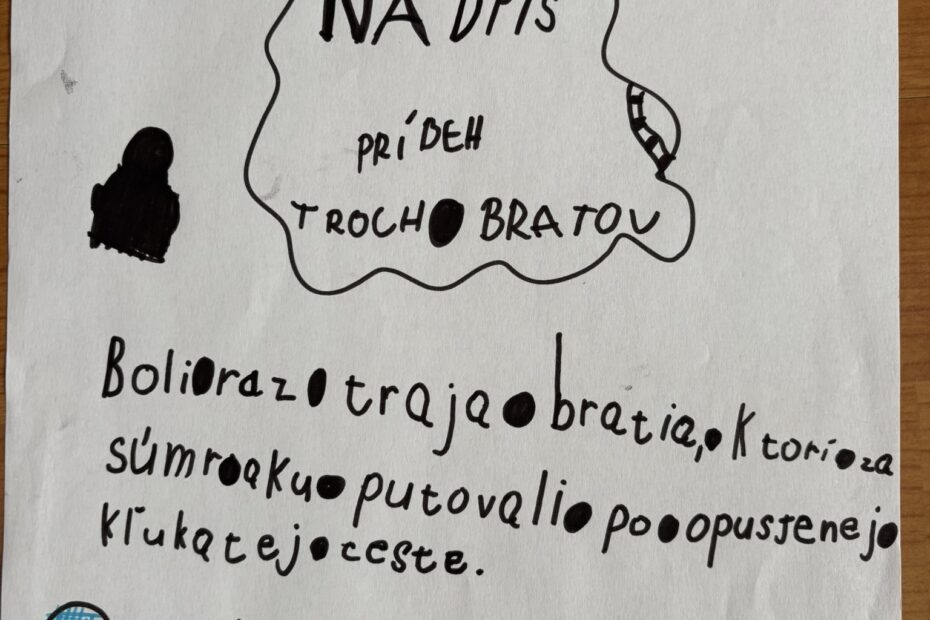 NADPIS
PRÍBEH
TROCH BRATOV
Boli raz traja bratia, ktorí za
súmraku putovali po opustenej
kľukatej ceste.